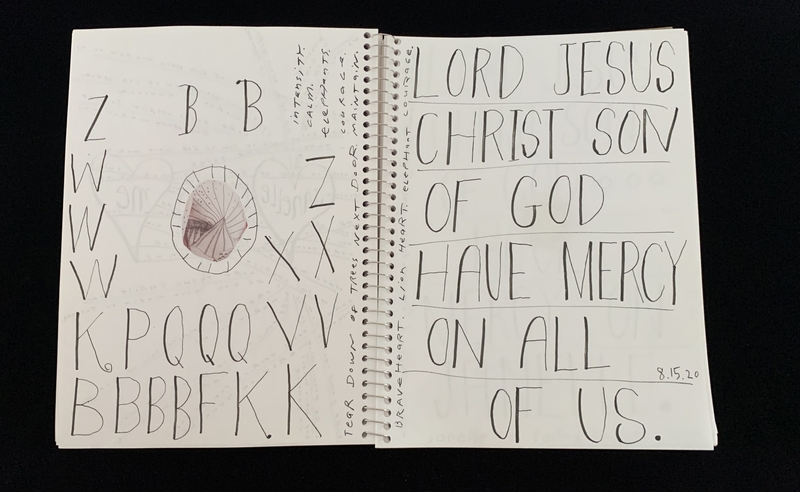 B B
Z
W
W
W
Z
X X
K P Q Q Q V V
B B B B F K. K
intensity.
calm.
elephants.
courage.
TEAR DOWN OF TREES NEXT DOOR. MAINTAIN.
BRAVE HEART. Lion HEART. elephant courage.
LORD JESUS
CHRIST SON
OF GOD
HAVE MERCY
ON ALL
8.15.20
OF US.